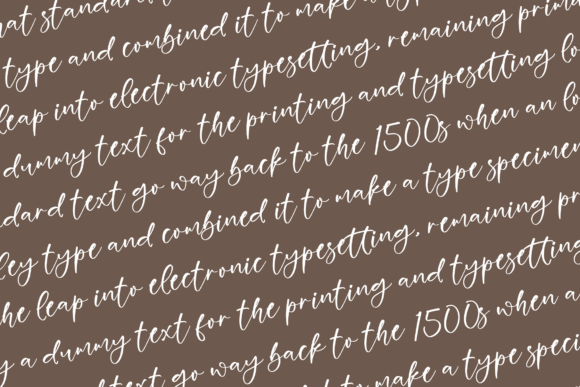 hat standard
type and combined it to make a ty
leap into electronic typesetting, remaining prim
dummy text for the printing and typesetting
dard text go way back to the 1500s when an
ley type and combined it to make a type specimen
he leap into electronic typesetting, remaining pr
y a dummy text for the printing and typesetting
text go way back to the 1500s when a
it to make a type speci